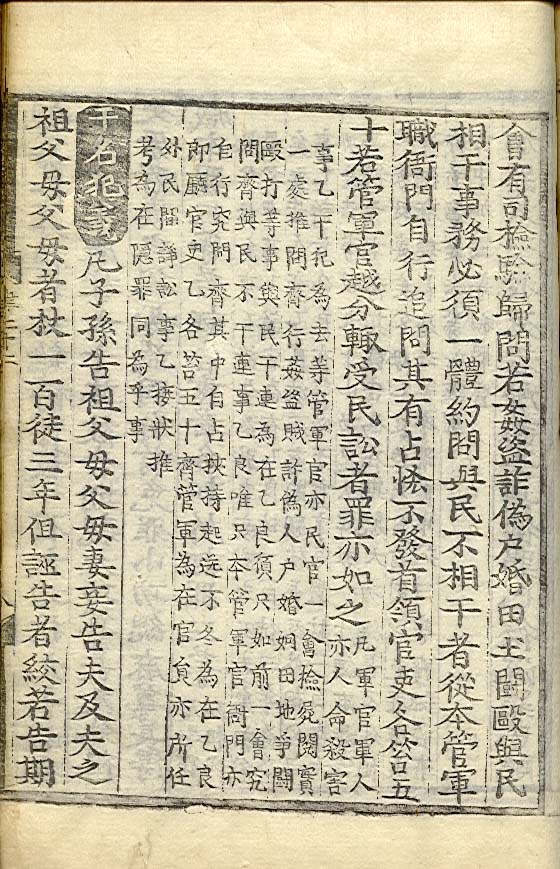 會有司檢驗歸問若姦盜詐偽户婚田土鬪毆與民
相干事務必須一體約問與民不相干者從本管軍
職衙門自行追問其有占恡不發首領官吏各笞五
十若管軍官越分輒受民訟者罪亦如之
凡軍官軍人
亦人命殺害
事乙干犯為去等管軍官亦民官一會檢屍閱實
一處推問齊行姦盜賊詐偽人户婚姻田地爭鬪
毆打等事與民干連為在乙良須只如前一會究
問齊與民不干連事乙良唯只本管軍官衙門亦
自行究問齊其中自占挾持起送不冬為在乙良
郎廳官吏乙各笞五十齊管軍為在官員亦所任
外民間諍訟事乙接狀推
考為在隱罪同為乎事
干名犯義 凡子孫告祖父母父母妻妾告夫及夫之
祖父母父母者杖一百徒三年但誣告者絞若告期